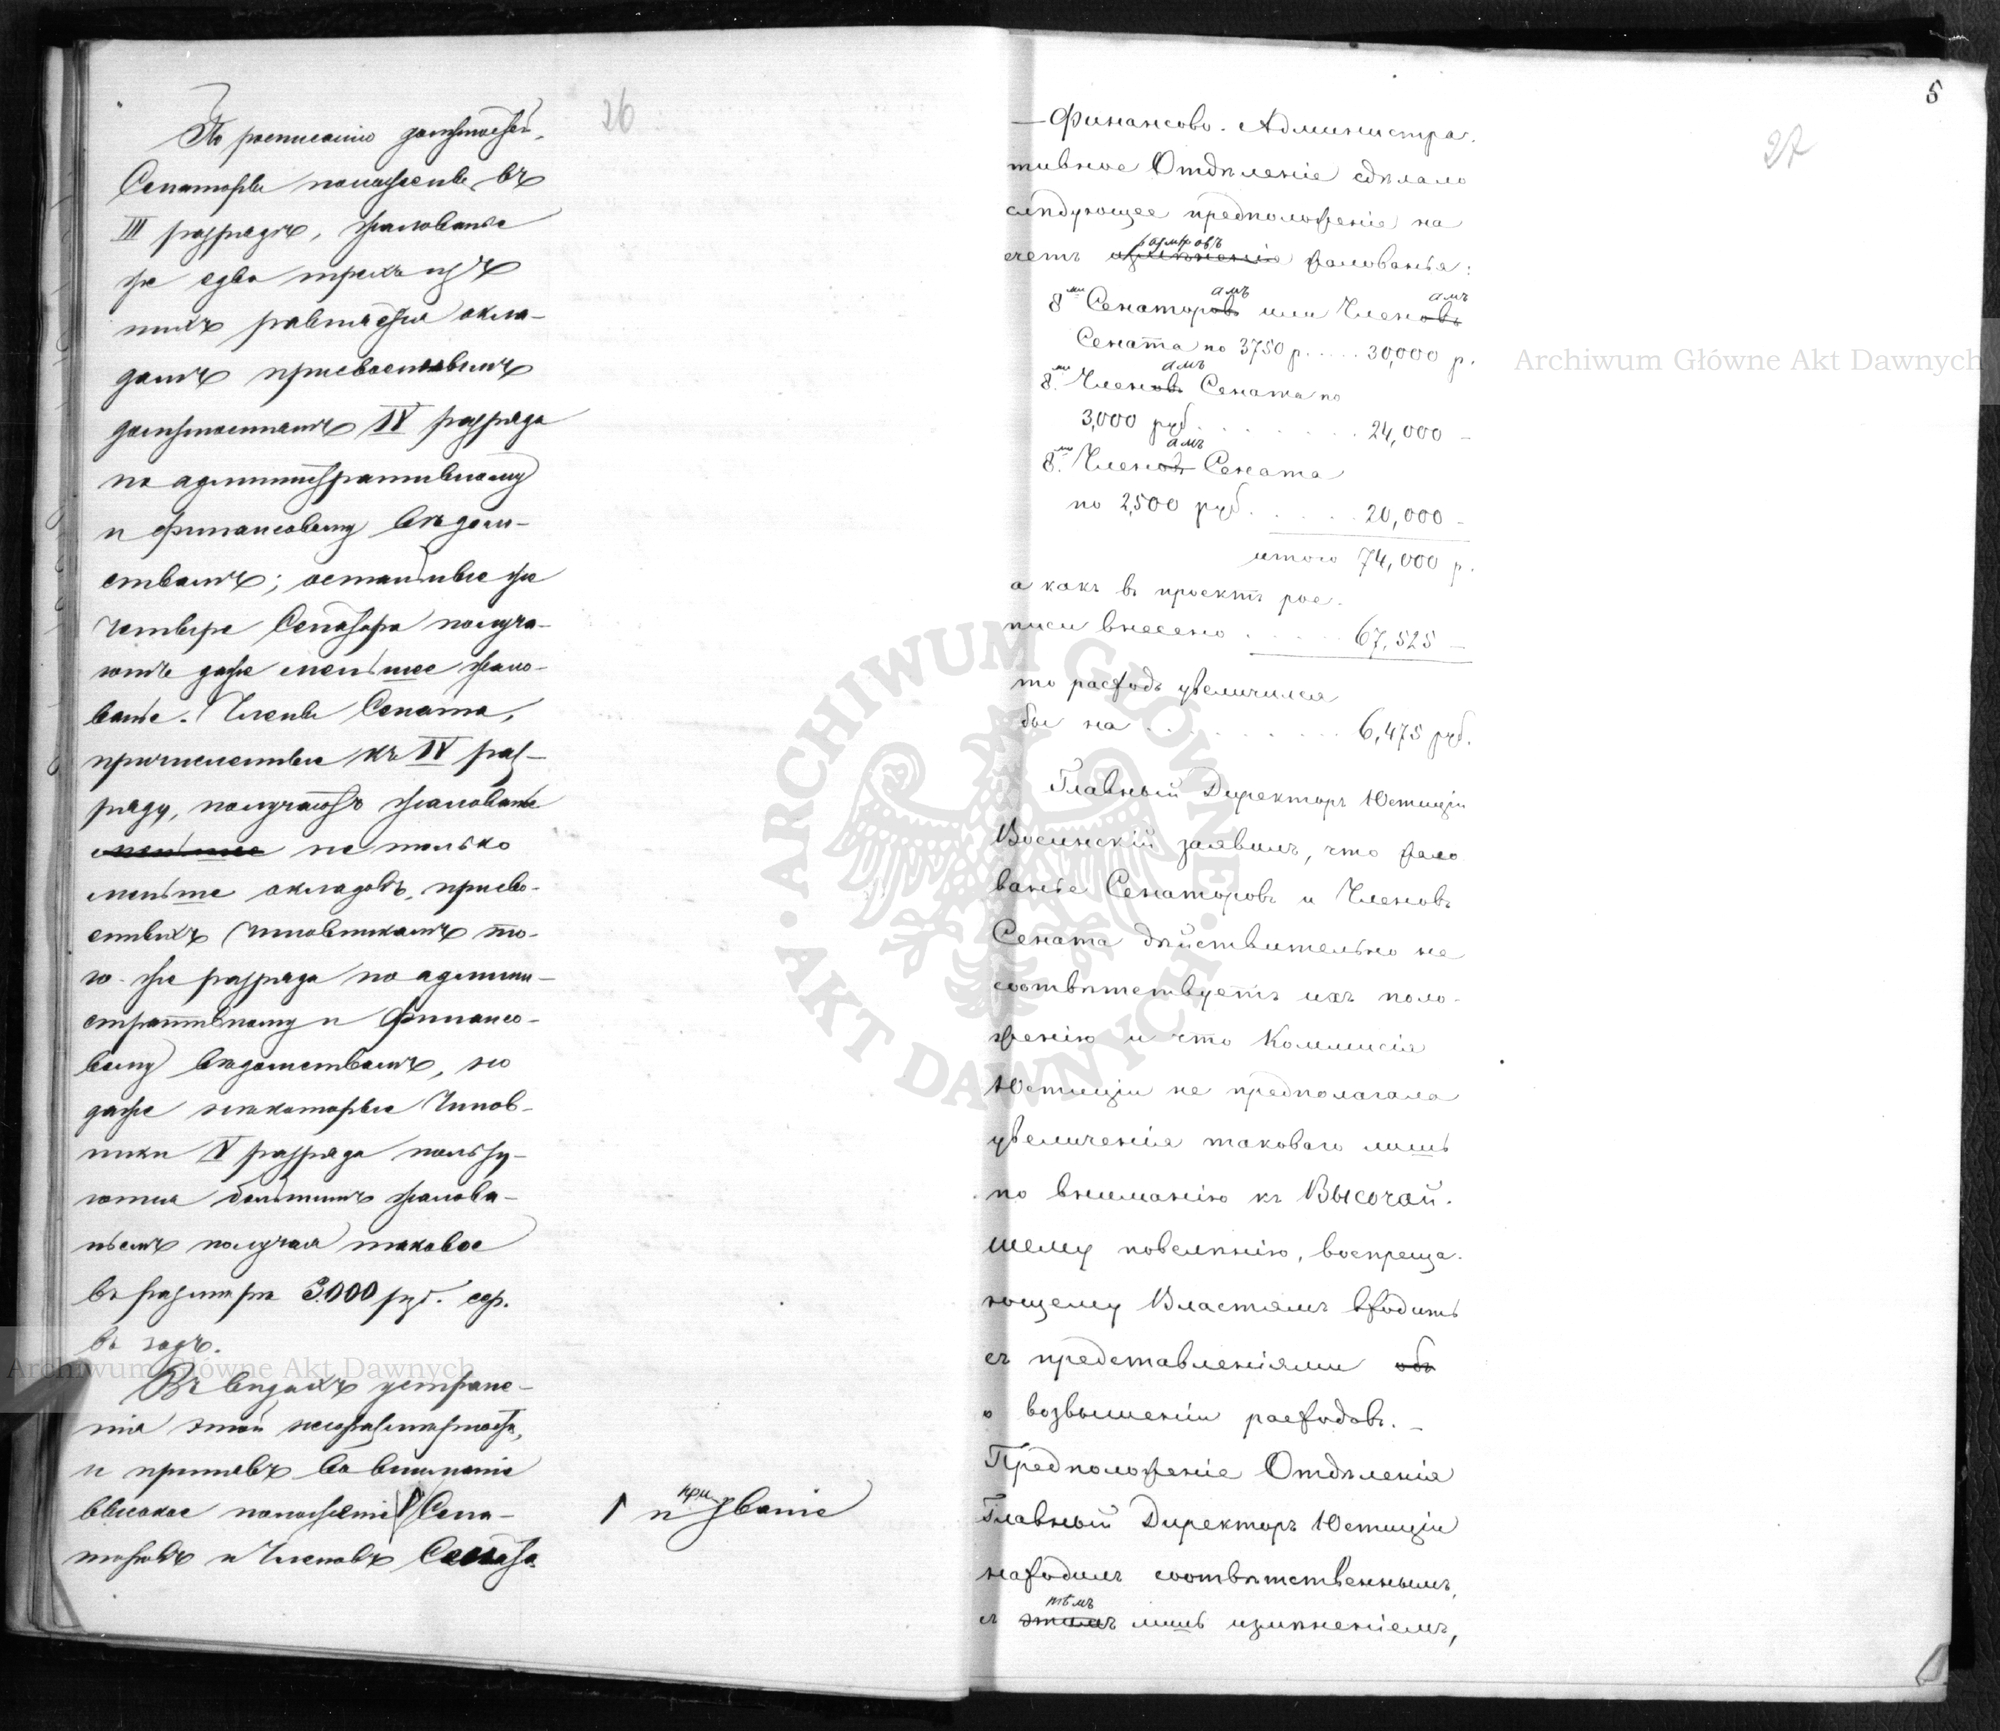 26
По росписанію должностей,
Сенаторы положены въ
III разрядѣ, жалованье
же едва трехъ изъ
нихъ равняется окла-
дамъ присвоеннымъ
должностямъ IV разряда
по административному
и финансовому вѣдом-
ствамъ; остальные же
четыре Сенатора получа-
ютъ даже меньшее жало-
ванье. Члены Сената,
причисленные къ IV раз-
ряду, получаютъ жалованье
меньшее не только
меньше окладовъ, присво-
енныхъ чиновникамъ то-
го-же разряда по админи-
стративному и финансо-
вому вѣдомствамъ, но
даже нѣкоторые чинов-
ники V разряда пользу-
ются большимъ жалова-
ньемъ получая таковое
въ размѣрѣ 3.000 руб. сер.
въ годъ.
Въ видахъ устране-
нія этой несоразмѣрности,
и принявъ во вниманіе
высокое положеніе Сена-
торовъ и Членовъ Сената
при
и званіе
5
27
Финансово-Администра-
тивное Отдѣленіе сдѣлало
слѣдующее предположеніе на
размѣровъ
счетъ измѣненія жалованья:
амъ амъ
8ми Сенаторовъ или Членовъ
Сената по 3750 р..... 30,000 р.
амъ
8ми Членовъ Сената по
3,000 руб........ 24,000 —
амъ
8ми Членовъ Сената
по 2,500 руб...... 20,000 —
итого 74,000 р.
а какъ въ проектѣ рос-
писи внесено...... 67,525 —
то расходъ увеличился
бы на......... 6,475 руб.
Главный Директоръ Юстиціи
Восинскій заявилъ, что жало
ванье Сенаторовъ и Членовъ
Сената дѣйствительно не
соотвѣтствуетъ ихъ поло-
женію и что Коммисія
Юстиціи не предполагала
увеличенія таковаго лишь
по вниманію къ Высочай-
шему повелѣнію, воспреща-
ющему Властямъ входить
съ представленіями объ
о возвышеніи расходовъ. —
Предположеніе Отдѣленія
Главный Директоръ Юстиціи
находилъ соотвѣтственнымъ,
тѣмъ
съ этимъ лишь измѣненіемъ,
Archiwum Główne Akt Dawnych
Archiwum Główne Akt Dawnych
ARCHIWUM GŁÓWNE · AKT DAWNYCH ·